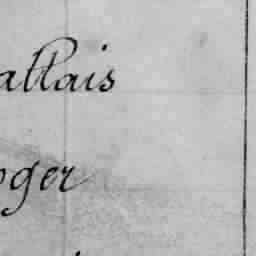 allais
oger